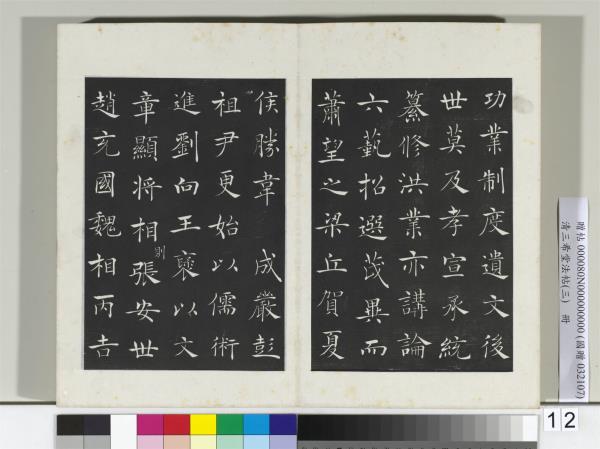 功業制度遺文後
世莫及孝宣承統
纂修洪業亦講論
六藝招選茂異而
蕭望之梁丘賀夏
侯勝韋　成嚴彭
祖尹更始以儒術
進劉向王襃以文
章顯將相則張安世
趙充國魏相丙吉
贈帖 000080N000000000 (國贈 032107)
清三希堂法帖(三)　冊
12